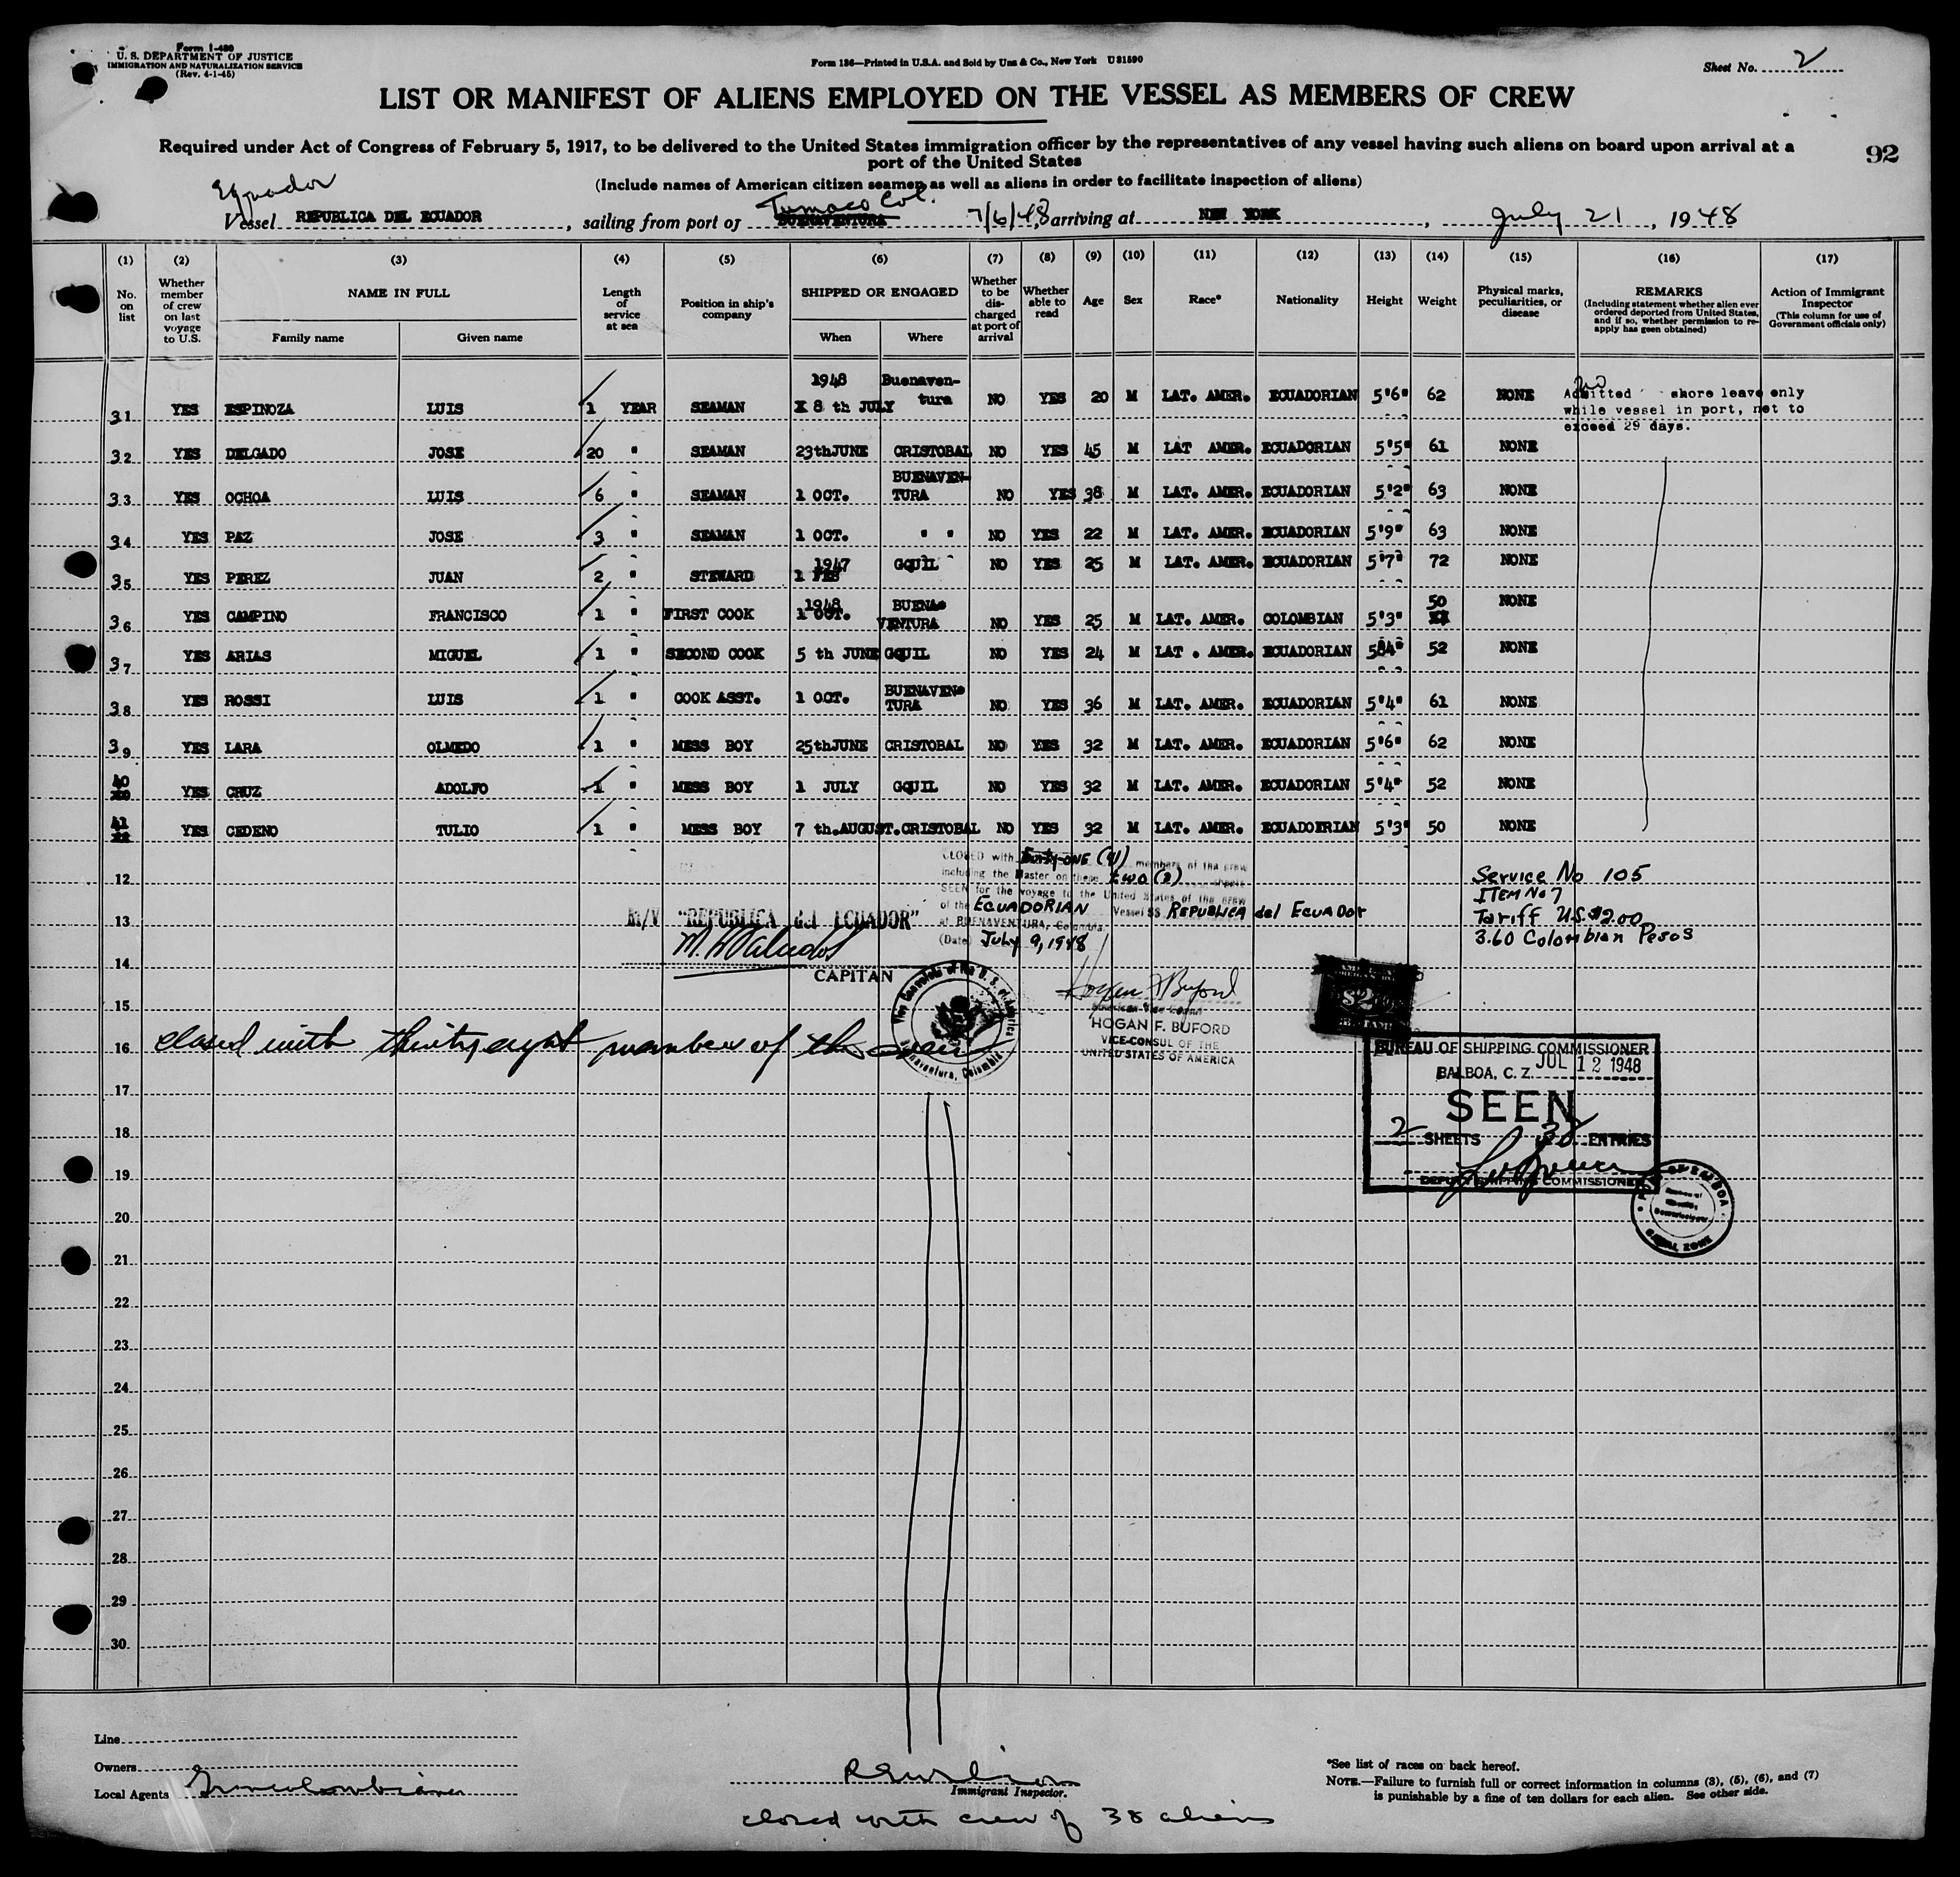 Form I-480
U. S. DEPARTMENT OF JUSTICE
IMMIGRATION AND NATURALIZATION SERVICE
(Rev. 4-1-45)
Form 136—Printed in U.S.A. and Sold by Unz & Co., New York U31590
Sheet No. 2
LIST OR MANIFEST OF ALIENS EMPLOYED ON THE VESSEL AS MEMBERS OF CREW
Required under Act of Congress of February 5, 1917, to be delivered to the United States immigration officer by the representatives of any vessel having such aliens on board upon arrival at a
port of the United States
92
(Include names of American citizen seamen as well as aliens in order to facilitate inspection of aliens)
Ecuador
Tumaco Col.
Vessel REPUBLICA DEL ECUADOR, sailing from port of BUENAVENTURA 7/6/48, arriving at NEW YORK, July 21, 1948
(1) (2) (3) (4) (5) (6) (7) (8) (9) (10) (11) (12) (13) (14) (15) (16) (17)
No. on list
Whether member of crew on last voyage to U.S.
NAME IN FULL
Family name
Given name
Length of service at sea
Position in ship's company
SHIPPED OR ENGAGED
When
Where
Whether to be discharged at port of arrival
Whether able to read
Age
Sex
Race*
Nationality
Height
Weight
Physical marks, peculiarities, or disease
REMARKS
(Including statement whether alien ever ordered deported from United States, and if so, whether permission to re-apply has been obtained)
Action of Immigrant Inspector
(This column for use of Government officials only)
31 YES ESPINOZA LUIS 1 YEAR SEAMAN 1948 X 8 th JULY Buenaven-tura NO YES 20 M LAT. AMER. ECUADORIAN 5'6" 62 NONE
Admitted shore leave only
while vessel in port, not to
exceed 29 days.
32 YES DELGADO JOSE 20 " SEAMAN 23thJUNE CRISTOBAL NO YES 45 M LAT AMER. ECUADORIAN 5'5" 61 NONE
33 YES OCHOA LUIS 6 " SEAMAN 1 OCT. BUENAVEN-TURA NO YES 38 M LAT. AMER. ECUADORIAN 5'2" 63 NONE
34 YES PAZ JOSE 3 " SEAMAN 1 OCT. " " NO YES 22 M LAT. AMER. ECUADORIAN 5'9" 63 NONE
35 YES PEREZ JUAN 2 " STEWARD 1947 1 FEB GQUIL NO YES 25 M LAT. AMER. ECUADORIAN 5'7" 72 NONE
36 YES CAMPINO FRANCISCO 1 " FIRST COOK 1948 1 OCT. BUENA-VENTURA NO YES 25 M LAT. AMER. COLOMBIAN 5'3" 50 NONE
37 YES ARIAS MIGUEL 1 " SECOND COOK 5 th JUNE GQUIL NO YES 24 M LAT . AMER. ECUADORIAN 584" 52 NONE
38 YES ROSSI LUIS 1 " COOK ASST. 1 OCT. BUENAVEN-TURA NO YES 36 M LAT. AMER. ECUADORIAN 5'4" 61 NONE
39 YES LARA OLMEDO 1 " MESS BOY 25thJUNE CRISTOBAL NO YES 32 M LAT. AMER. ECUADORIAN 5'6" 62 NONE
40 YES CRUZ ADOLFO 1 " MESS BOY 1 JULY GQUIL NO YES 32 M LAT. AMER. ECUADORIAN 5'4" 52 NONE
41 YES CEDENO TULIO 1 " MESS BOY 7 th.AUGUST. CRISTOBAL NO YES 32 M LAT. AMER. ECUADOERIAN 5'3" 50 NONE
CLOSED with Forty-ONE (41) members of the crew
including the Master on these two (2) sheets
SEEN for the voyage to the United States of the crew
of the ECUADORIAN Vessel SS REPUBLICA del EcuADor
at BUENAVENTURA, Colombia
(Date) July 9, 1948
Service No 105
ITEM No 7
Tariff U.S. $2.00
3.60 Colombian Pesos
M/V "REPUBLICA del ECUADOR"
CAPITAN
12
13
14
15
16
Vice Consulate of the U. S. of America
Buenaventura, Colombia
American Vice Consul
HOGAN F. BUFORD
VICE-CONSUL OF THE
UNITED STATES OF AMERICA
$2
closed with thirty eight members of the crew
BUREAU OF SHIPPING COMMISSIONER
BALBOA, C. Z. JUL 12 1948
SEEN
2 SHEETS 38 ENTRIES
DEPUTY SHIPPING COMMISSIONER
CANAL ZONE
17
18
19
20
21
22
23
24
25
26
27
28
29
30
Line
Owners
Local Agents Grancolombiana
Immigrant Inspector.
closed with crew of 38 aliens
*See list of races on back hereof.
NOTE.—Failure to furnish full or correct information in columns (3), (5), (6), and (7)
is punishable by a fine of ten dollars for each alien. See other side.